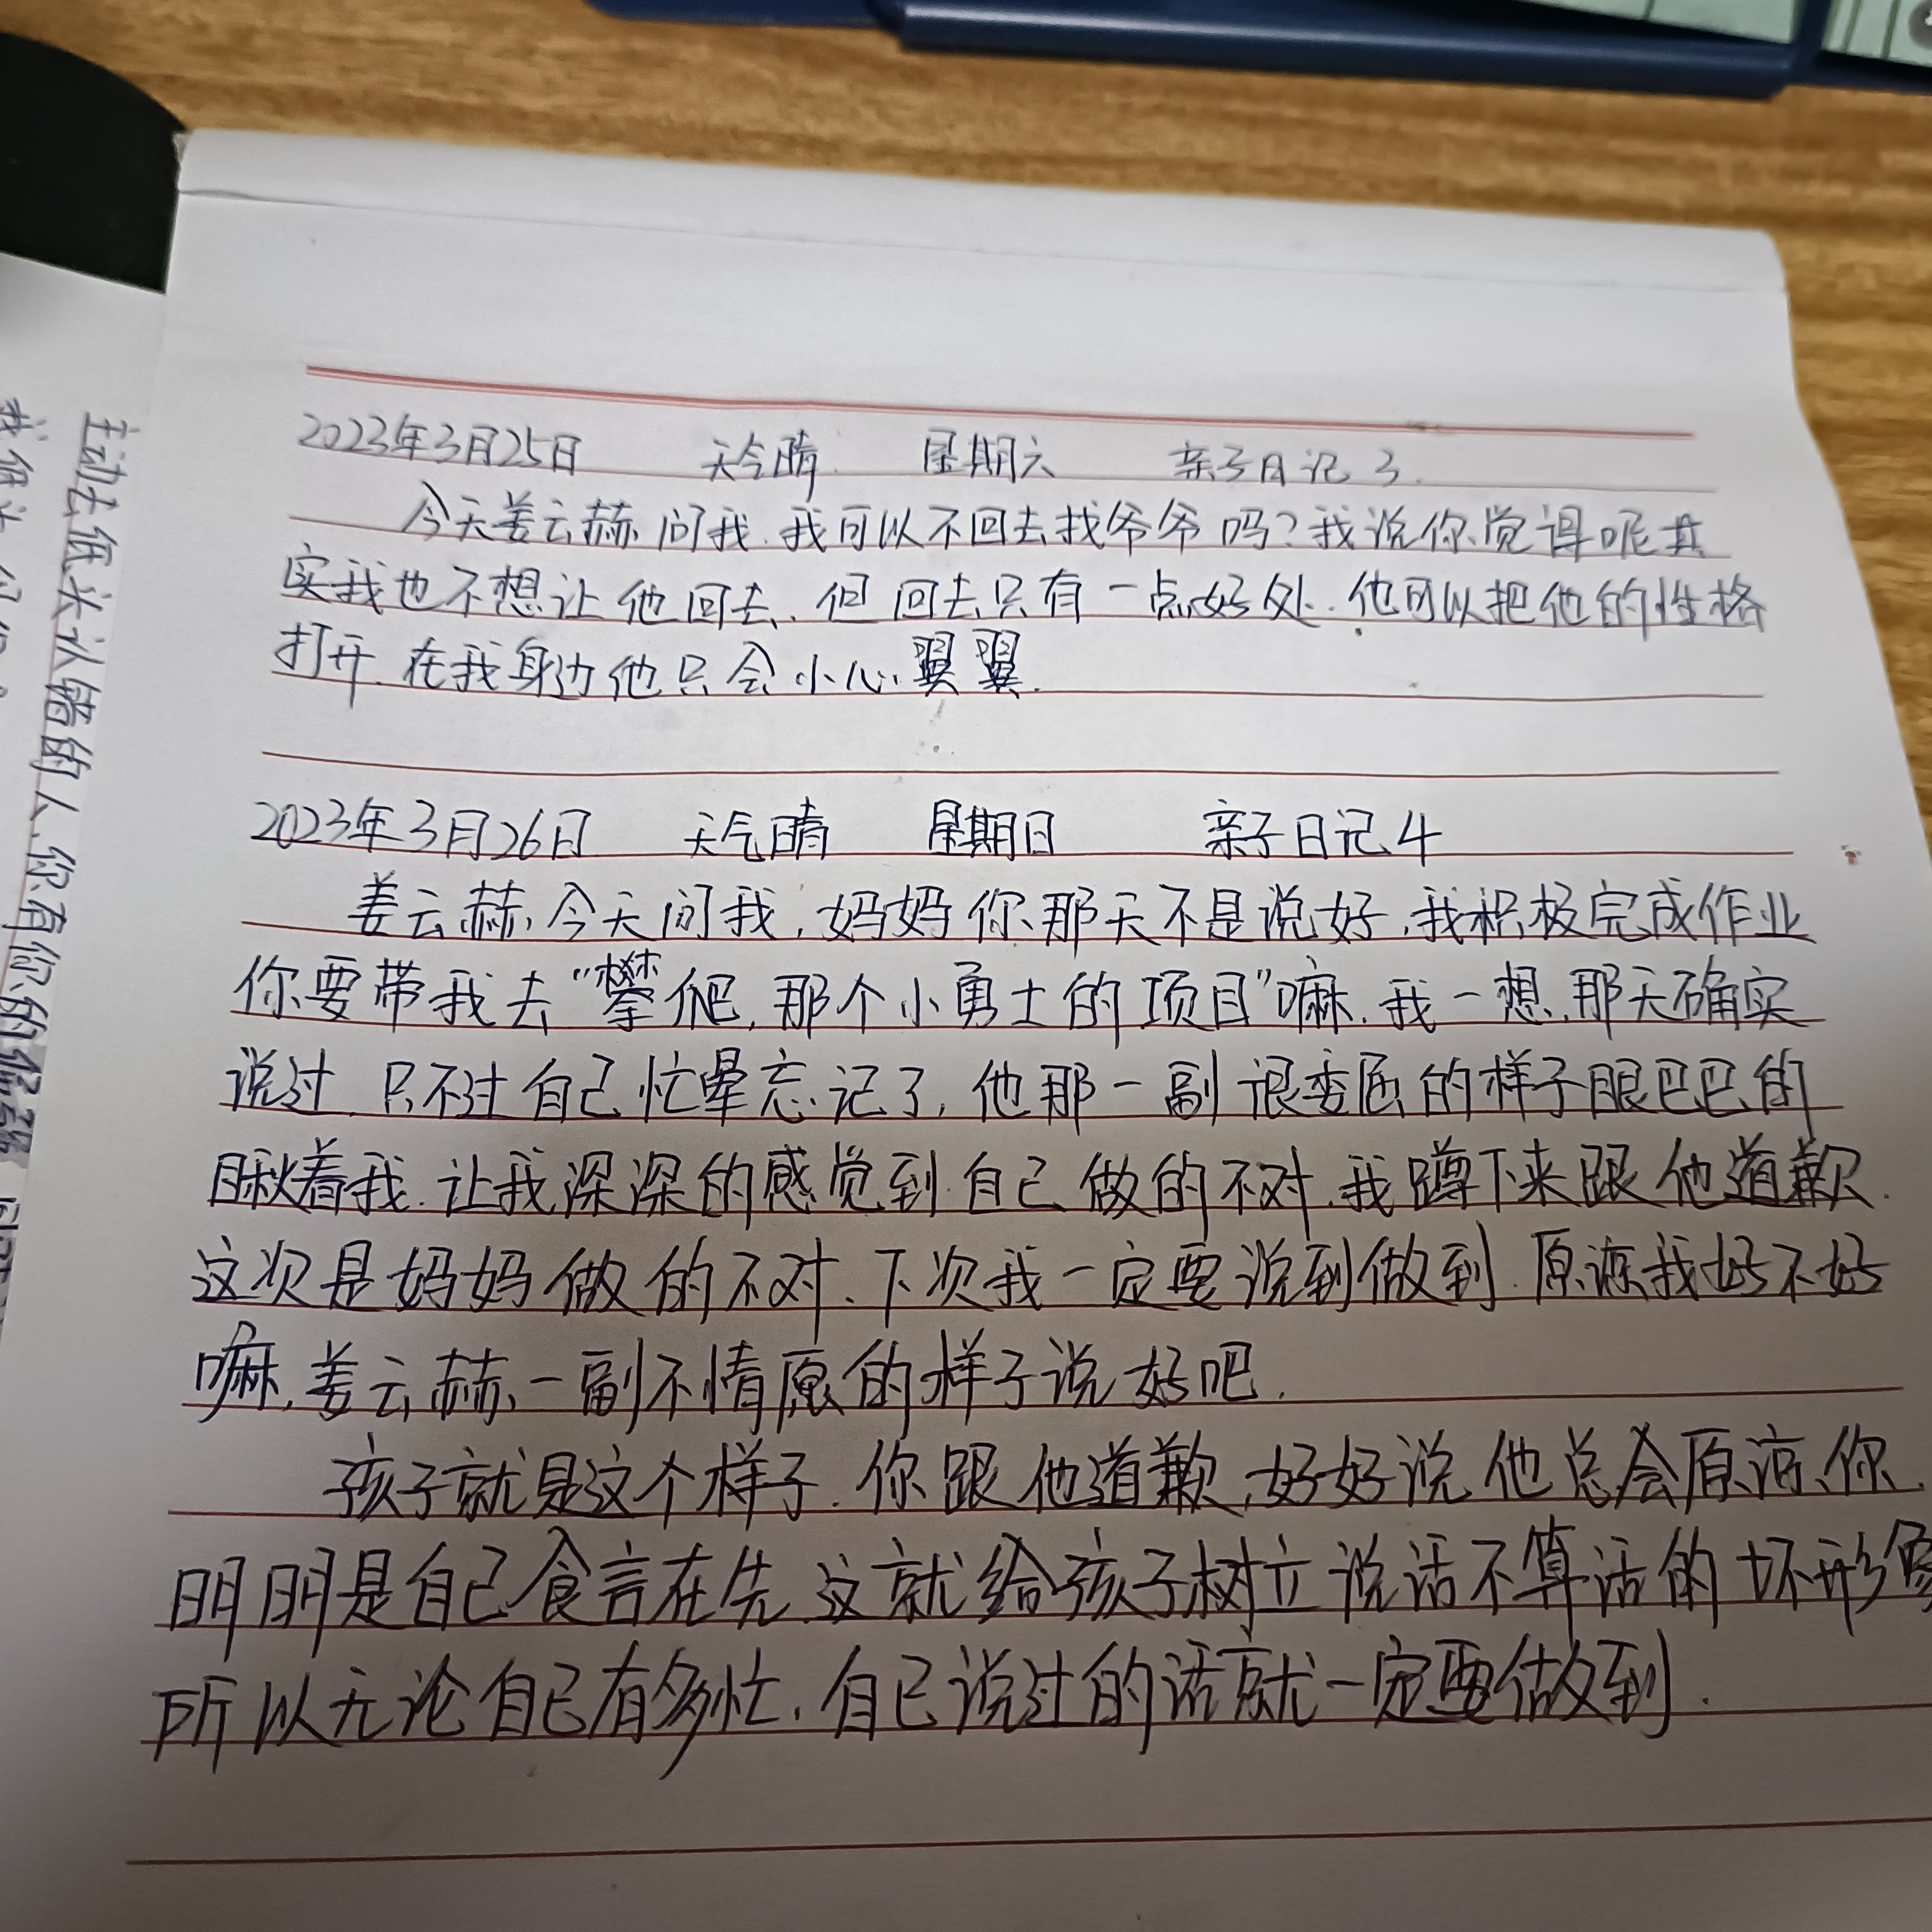 2023年3月25日 天今晴 星期六 亲子日记3.
今天姜云赫问我.我可以不回去找爷爷吗?我说你觉得呢其
实我也不想让他回去.但回去只有一点好处.他可以把他的性格
打开.在我身边他只会小心翼翼.
2023年3月26日 天气晴 星期日 亲子日记4
姜云赫今天问我,妈妈你那天不是说好,我积极完成作业
你要带我去“攀爬,那个小勇士的项目”嘛.我一想,那天确实
说过.只不过自己忙晕忘记了,他那一副很委屈的样子眼巴巴的
瞅着我.让我深深的感觉到自己做的不对.我蹲下来跟他道歉.
这次是妈妈做的不对.下次我一定要说到做到.原谅我好不好
嘛.姜云赫一副不情愿的样子说好吧.
孩子就是这个样子.你跟他道歉,好好说他总会原谅你.
明明是自己食言在先.这就给孩子树立说话不算话的坏形象
所以无论自己有多忙.自己说过的话就一定要做到.
主动去低头认错的人.你有你的倔强